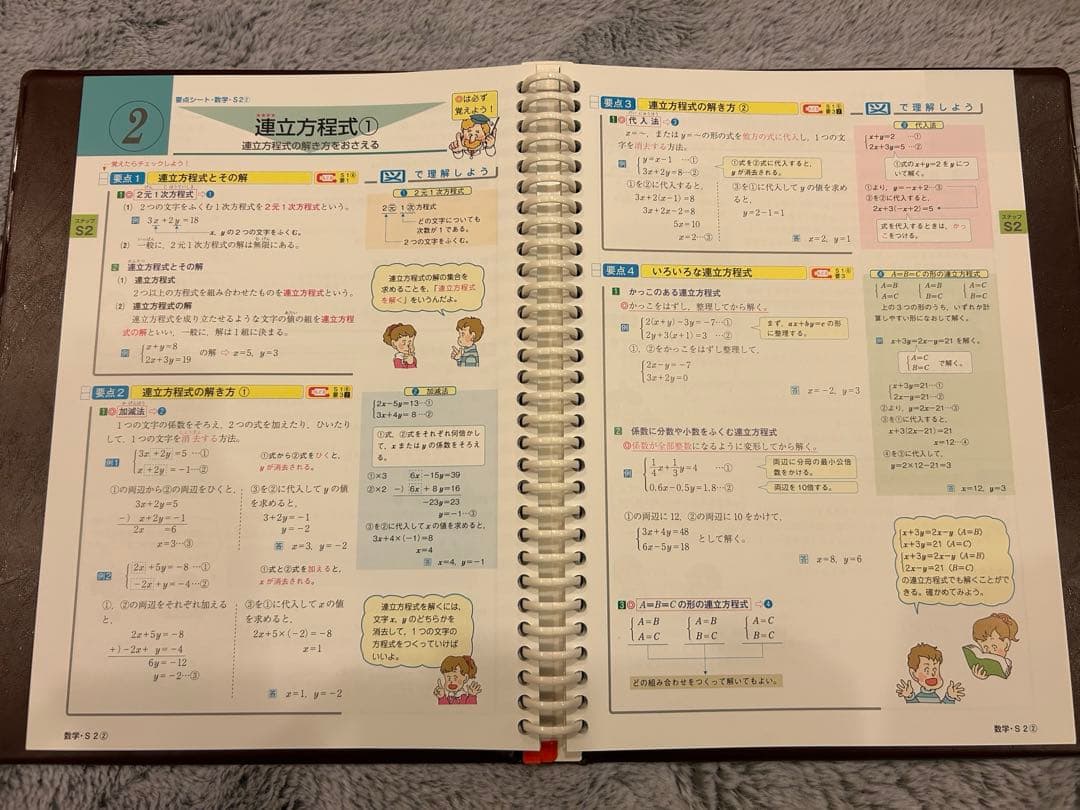 2
要点シート・数学・S2②
連立方程式①
連立方程式の解き方をおさえる
◎は必ず
覚えよう!
覚えたらチェックしよう!
ステップ
S2
要点1 連立方程式とその解
図で理解しよう
1 ◎2元1次方程式 ⇨1
(1) 2つの文字をふくむ1次方程式を2元1次方程式という。
例 3x+2y=18
x, yの2つの文字をふくむ。
(2) 一般に、2元1次方程式の解は無限にある。
1 2元1次方程式
2元 1次方程式
どの文字についても
次数が1である。
2つの文字をふくむ。
2 連立方程式とその解
(1) 連立方程式
2つ以上の方程式を組み合わせたものを連立方程式という。
(2) 連立方程式の解
連立方程式を成り立たせるような文字の値の組を連立方程
式の解といい、一般に、解は1組に決まる。
例 {x+y=8
2x+3y=19
の解 ⇨ x=5, y=3
連立方程式の解の集合を
求めることを、「連立方程式
を解く」をいうんだよ。
要点2 連立方程式の解き方①
1 ◎加減法 ⇨2
1つの文字の係数をそろえ、2つの式を加えたり、ひいたり
して、1つの文字を消去する方法。
例1 {3x+2y=5 …①
x+2y=-1…②
①式から②式をひくと、
yが消去される。
①の両辺から②の両辺をひくと、
3x+2y=5
-) x+2y=-1
2x =6
x=3…③
③を②に代入してyの値
を求めると、
3+2y=-1
y=-2
答 x=3, y=-2
例2 {2x+5y=-8 …①
-2x+y=-4…②
①式と②式を加えると、
xが消去される。
①、②の両辺をそれぞれ加える
と、
2x+5y=-8
+)-2x+ y=-4
6y=-12
y=-2…③
③を①に代入してxの値
を求めると、
2x+5×(-2)=-8
x=1
答 x=1, y=-2
2 加減法
{2x-5y=13…①
3x+4y= 8…②
①式、②式をそれぞれ何倍かし
て、xまたはyの係数をそろえ
る。
①×3 6x-15y=39
②×2 -) 6x+ 8y=16
-23y=23
y=-1…③
③を②に代入してxの値を求めると、
3x+4×(-1)=8
x=4
答 x=4, y=-1
連立方程式を解くには、
文字x, yのどちらかを
消去して、1つの文字の
方程式をつくっていけば
いいよ。
数学・S2②
要点3 連立方程式の解き方②
図で理解しよう
1 ◎代入法 ⇨3
x=〜、またはy=〜の形の式を他方の式に代入し、1つの文
字を消去する方法。
例 {y=x-1 …①
3x+2y=8…②
①式を②式に代入すると、
yが消去される。
①を②に代入すると、
3x+2(x-1)=8
3x+2x-2=8
5x=10
x=2…③
③を①に代入してyの値を求め
ると、
y=2-1=1
答 x=2, y=1
3 代入法
{x+y=2 …①
2x+3y=5 …②
①式のx+y=2をyにつ
いて解く。
①より、y=-x+2…③
③を②に代入すると、
2x+3(-x+2)=5
式を代入するときは、かっ
こをつける。
ステップ
S2
要点4 いろいろな連立方程式
1 かっこのある連立方程式
◎かっこをはずし、整理してから解く。
例 {2(x+y)-3y=-7…①
2y+3(x+1)=3 …②
まず、ax+by=cの形
に整理する。
①、②をかっこをはずし整理して、
{2x-y=-7
3x+2y=0
答 x=-2, y=3
2 係数に分数や小数をふくむ連立方程式
◎係数が全部整数になるように変形してから解く。
例 {1/4x+1/3y=4 …①
0.6x-0.5y=1.8…②
両辺に分母の最小公倍
数をかける。
両辺を10倍する。
①の両辺に12、②の両辺に10をかけて、
{3x+4y=48
6x-5y=18
として解く。
答 x=8, y=6
3 ◎A=B=Cの形の連立方程式 ⇨4
{A=B
A=C
{A=B
B=C
{A=C
B=C
どの組み合わせをつくって解いてもよい。
4 A=B=Cの形の連立方程式
{A=B
A=C
{A=B
B=C
{A=C
B=C
上の3つの形のうち、いずれか計
算しやすい形になおして解く。
例 x+3y=2x-y=21を解く。
{A=C
B=C
で解く。
{x+3y=21…①
2x-y=21…②
②より、y=2x-21…③
③を①に代入すると、
x+3(2x-21)=21
x=12…④
④を③に代入して、
y=2×12-21=3
答 x=12, y=3
{x+3y=2x-y (A=B)
x+3y=21 (A=C)
{x+3y=2x-y (A=B)
2x-y=21 (B=C)
の連立方程式でも解くことがで
きる。確かめてみよう。
数学・S2②